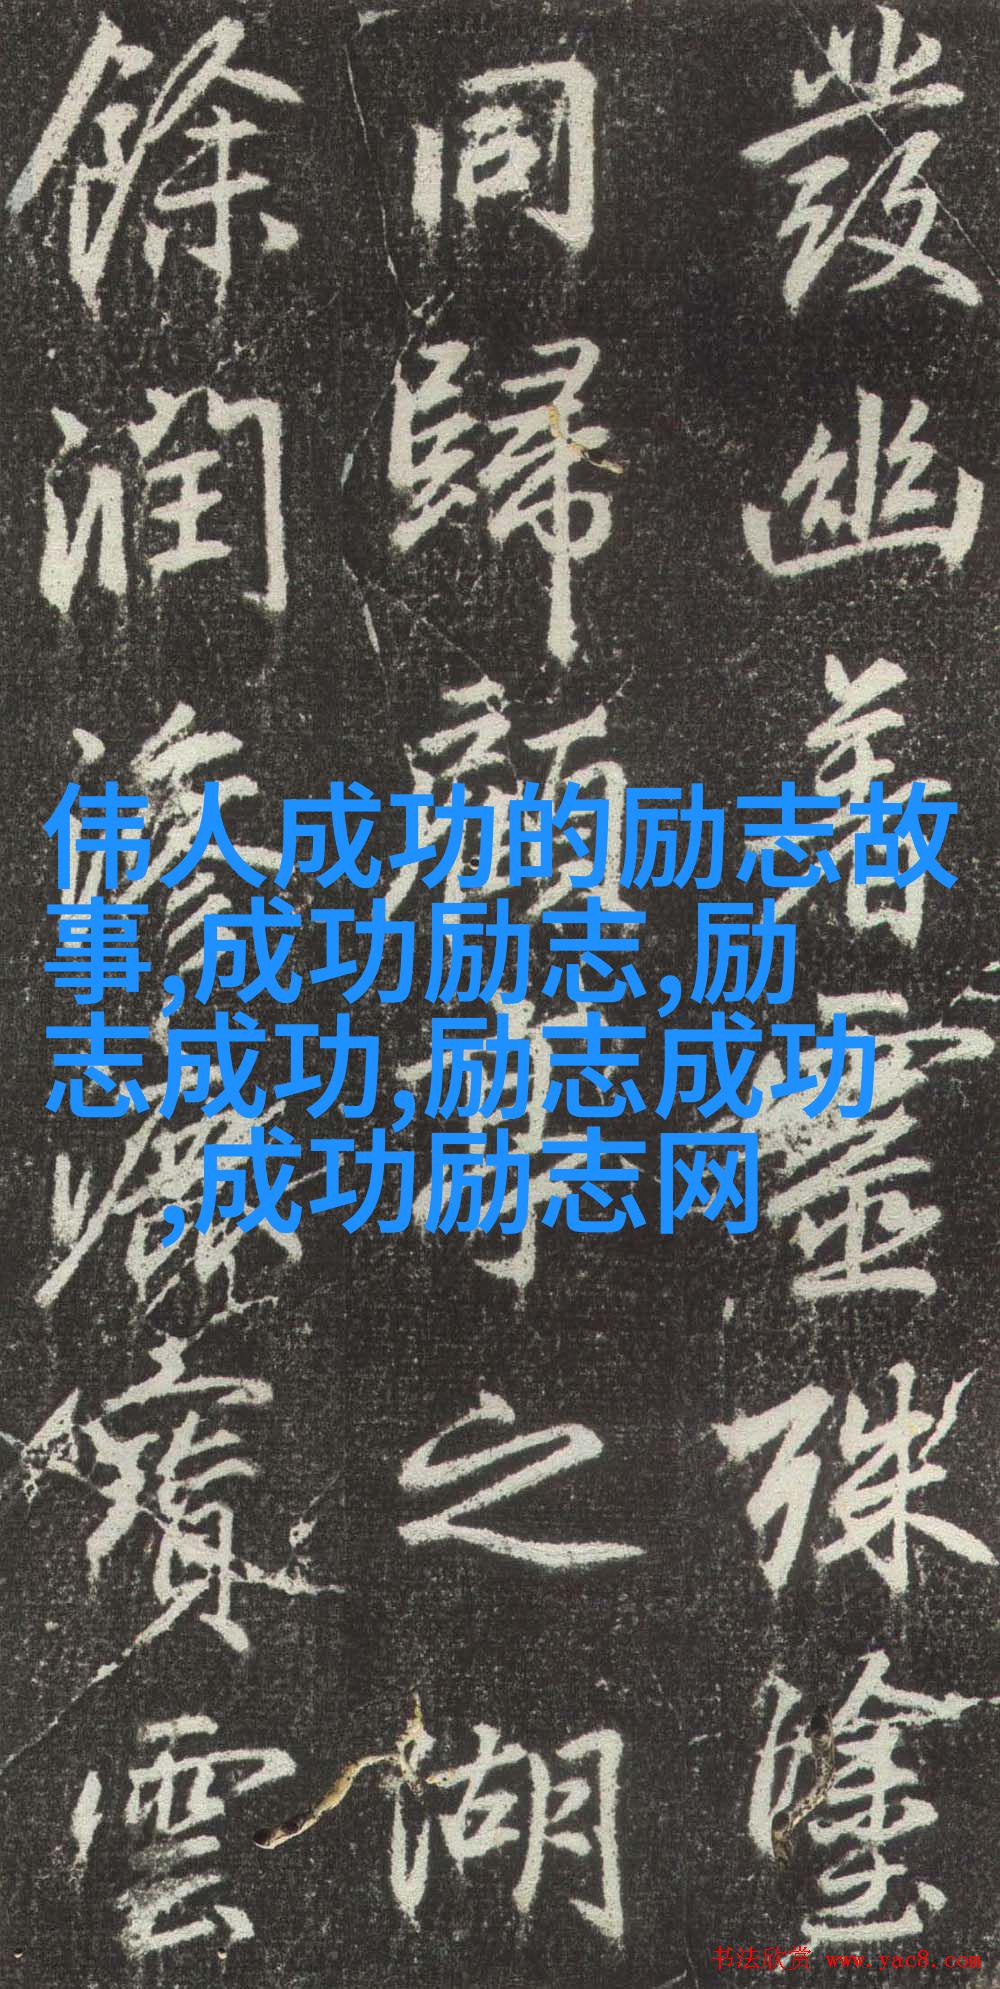 發幽著靈殊塗
同歸之湖
餘潤滲雲
伟人成功的励志故
事,成功励志,励
志成功,励志成功
,成功励志网
书法欣赏 www.yac8.com